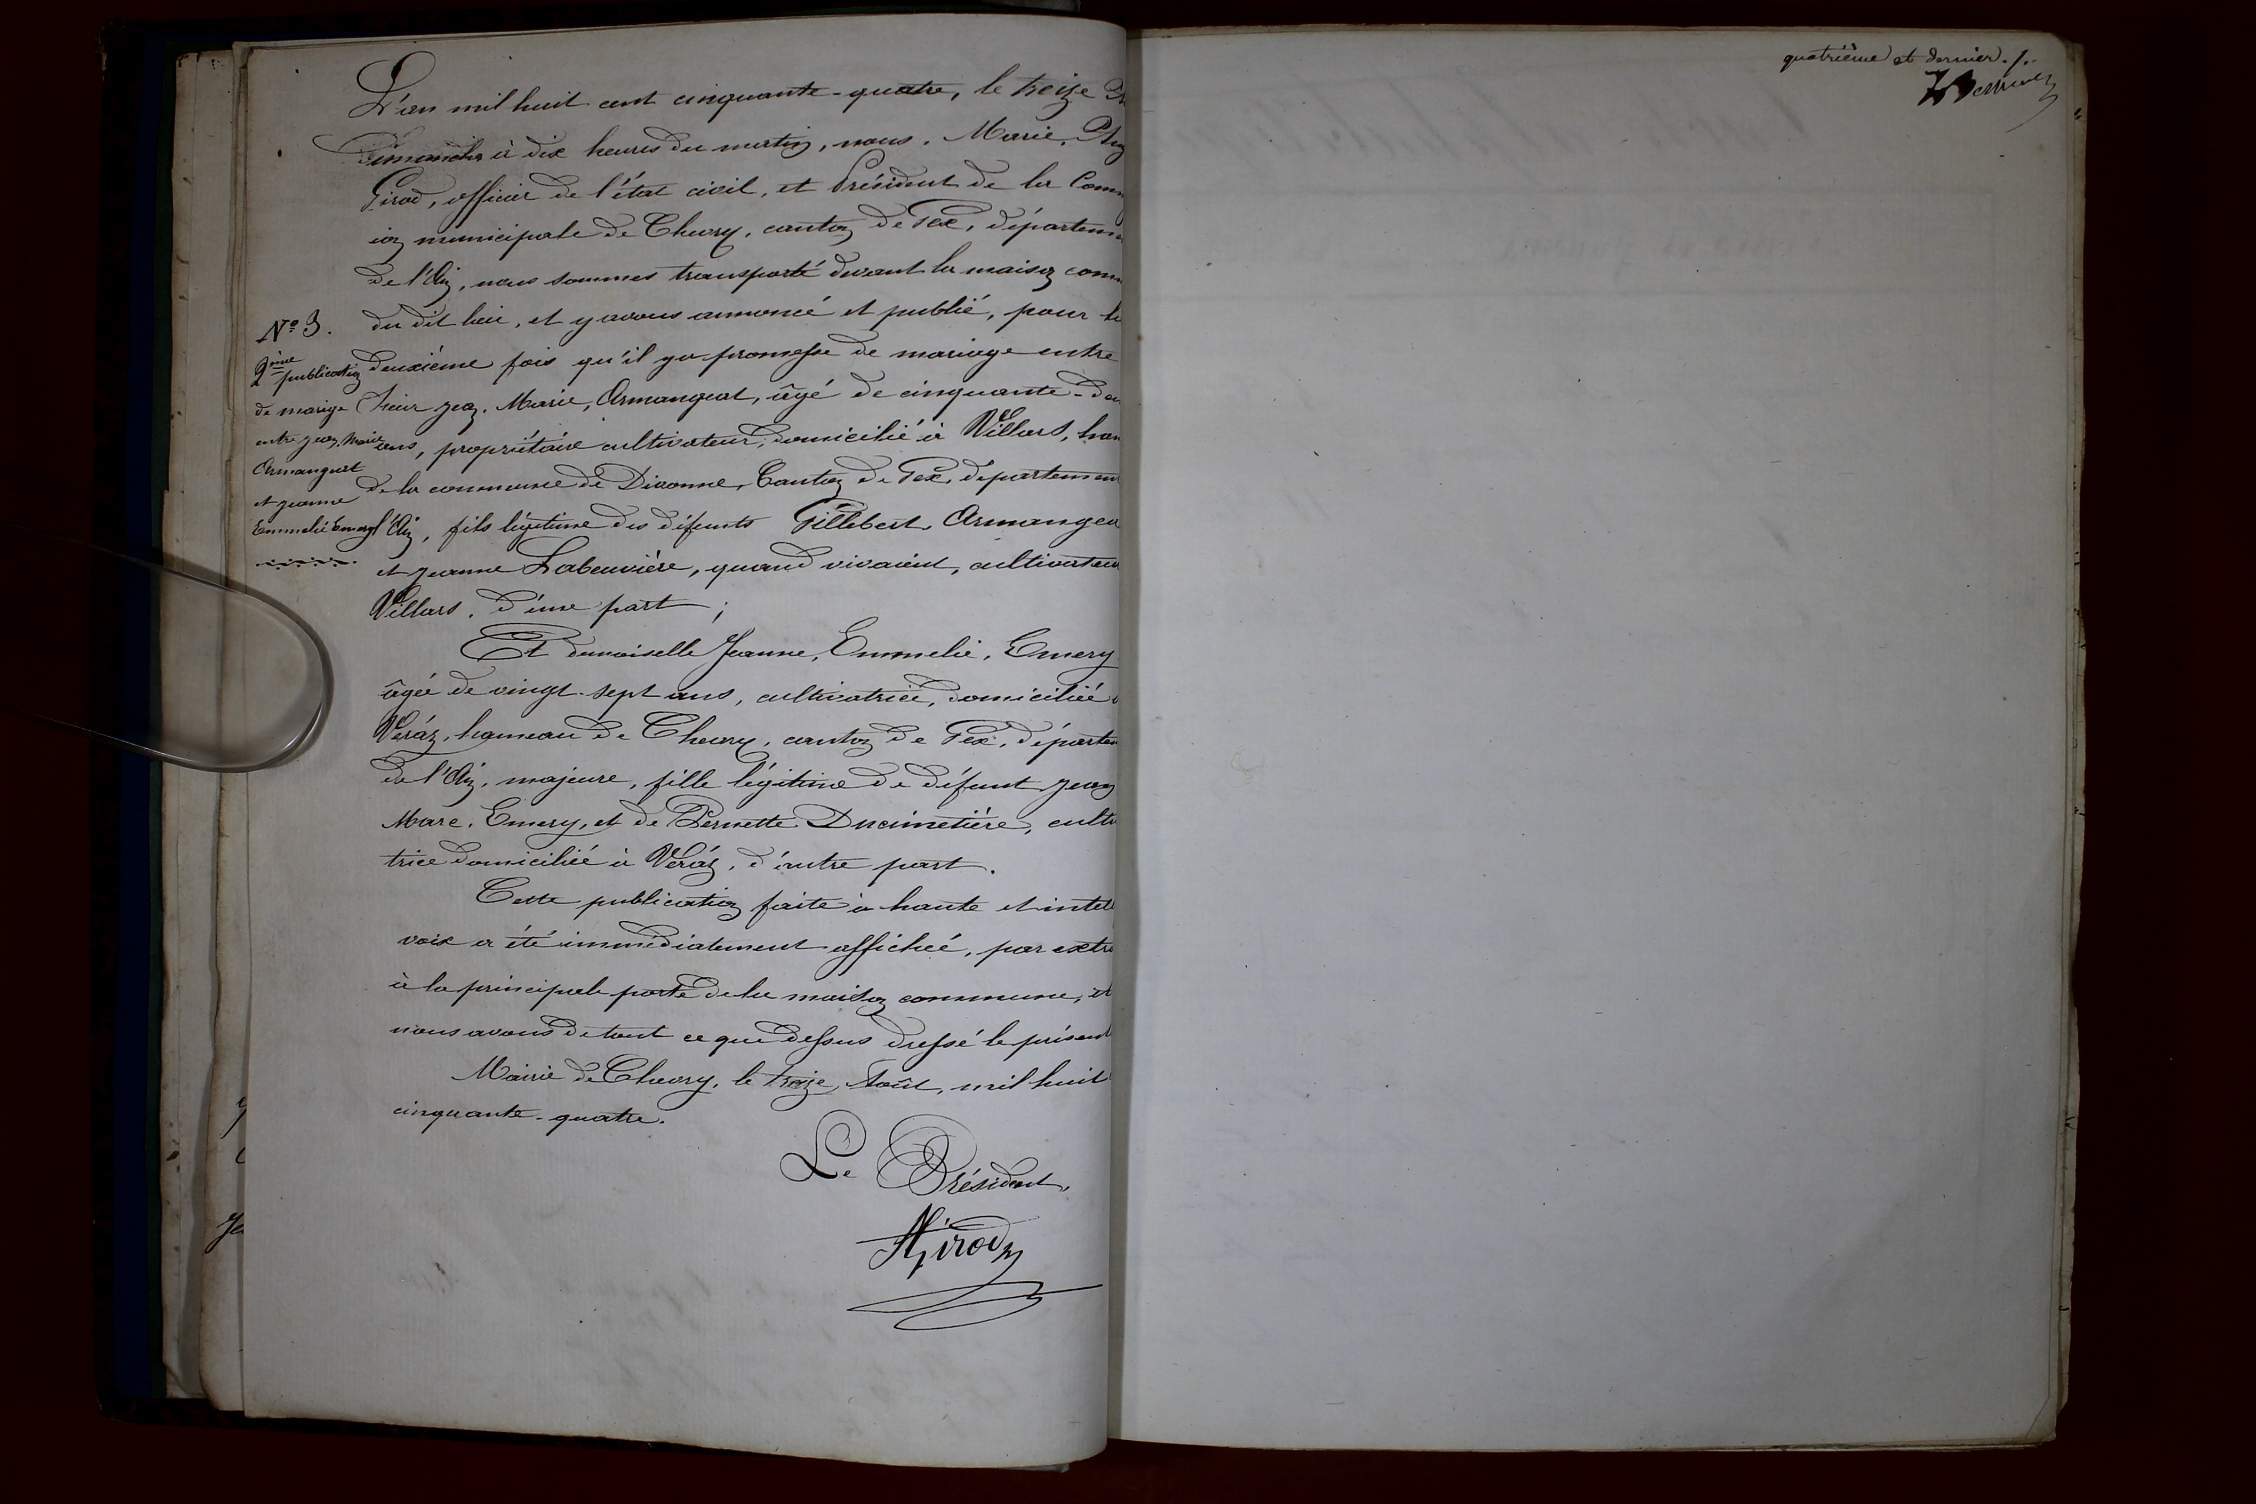 quatrième et dernier./.
L'an mil huit cent cinquante-quatre, le treize
Dimanche à dix heures du matin, nous, Marie,
Girod, officier de l'état civil, et Président de la Comm
ion municipale de Chevry, canton de Gex, départeme
de l'Ain, nous sommes transporté devant la maison comm
du dit lieu, et y avons annoncé et publié, pour la
deuxième fois qu'il y a promesse de mariage entre
sieur Jean, Marie, Armangeat, âgé de cinquante-deu
ans, propriétaire cultivateur, domicilié à Villars, ham
de la commune de Divonne, Canton de Gex, departemen
l'Ain, fils légitime des défunts Gillebert Armangea
et Jeanne Labeuvière, quand vivaient, cultivateu
Villars, d'une part ;
Et demoiselle Jeanne, Emmelie, Emery
âgée de vingt-sept ans, cultivatrice, domiciliée
Véráz, hameau de Chevry, canton de Gex, départem
de l'Ain, majeure, fille légitime de défunt Jean
Marc, Emery, et de Pernette Ducimetière, culti
trice domiciliée à Véráz, d'autre part.
Cette publication faite à haute et intel
voix a été immédiatement affichée, par extr
à la principale porte de la maison commune, et
nous avons de tout ce que dessus dressé le présent
Mairie de Chevry, le treize, Août, mil huit
cinquante-quatre.
Le Président,
Girod
N° 3.
2ème publication
de mariage
entre Jean, Marie
Armangeat
et Jeanne
Emmelie Emery